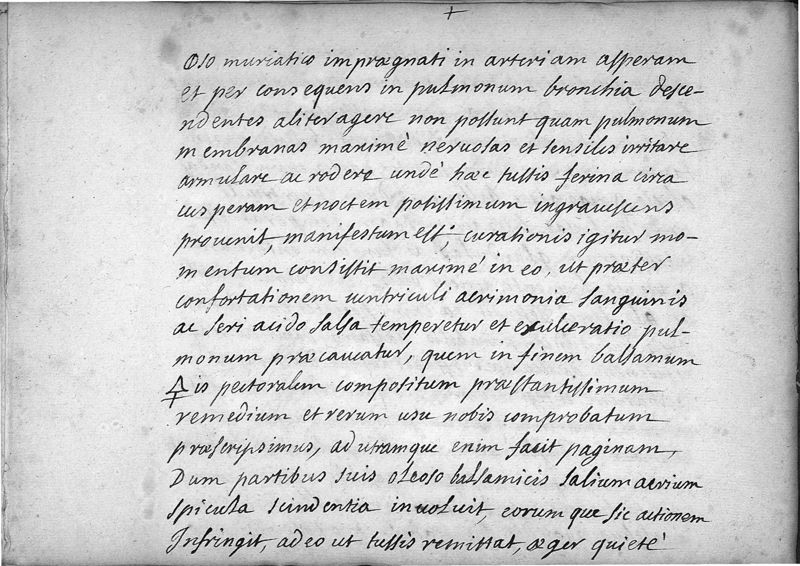 +
Oso muriatico imprægnati in arteriam asperam
et per consequens in pulmonum bronchia desce-
ndentes aliter agere non possunt quam pulmonum
membranas maximè nervosas et sensiles irritare
armulare ac rodere undè hæc tussis ferina circa
vesperam et noctem potissimum ingravescens
provenit, manifestum est; curationis igitur mo-
mentum consistit maximé in eo, ut præter
confortationem ventriculi acrimonia sanguinis
ac seri acido salsa temperetur et exulceratio pul-
monum præcaveatur, quem in finem balsamum
🜍is pectoralem compositum præstantissimum
remedium et rerum usu nobis comprobatum
præscripsimus, ad utramque enim facit paginam,
Dum partibus suis oleoso balsamicis salium acrium
spicula scindentia involvit, eorumque sic actionem
Infringit, adeo ut tussis remittat, æger quieté